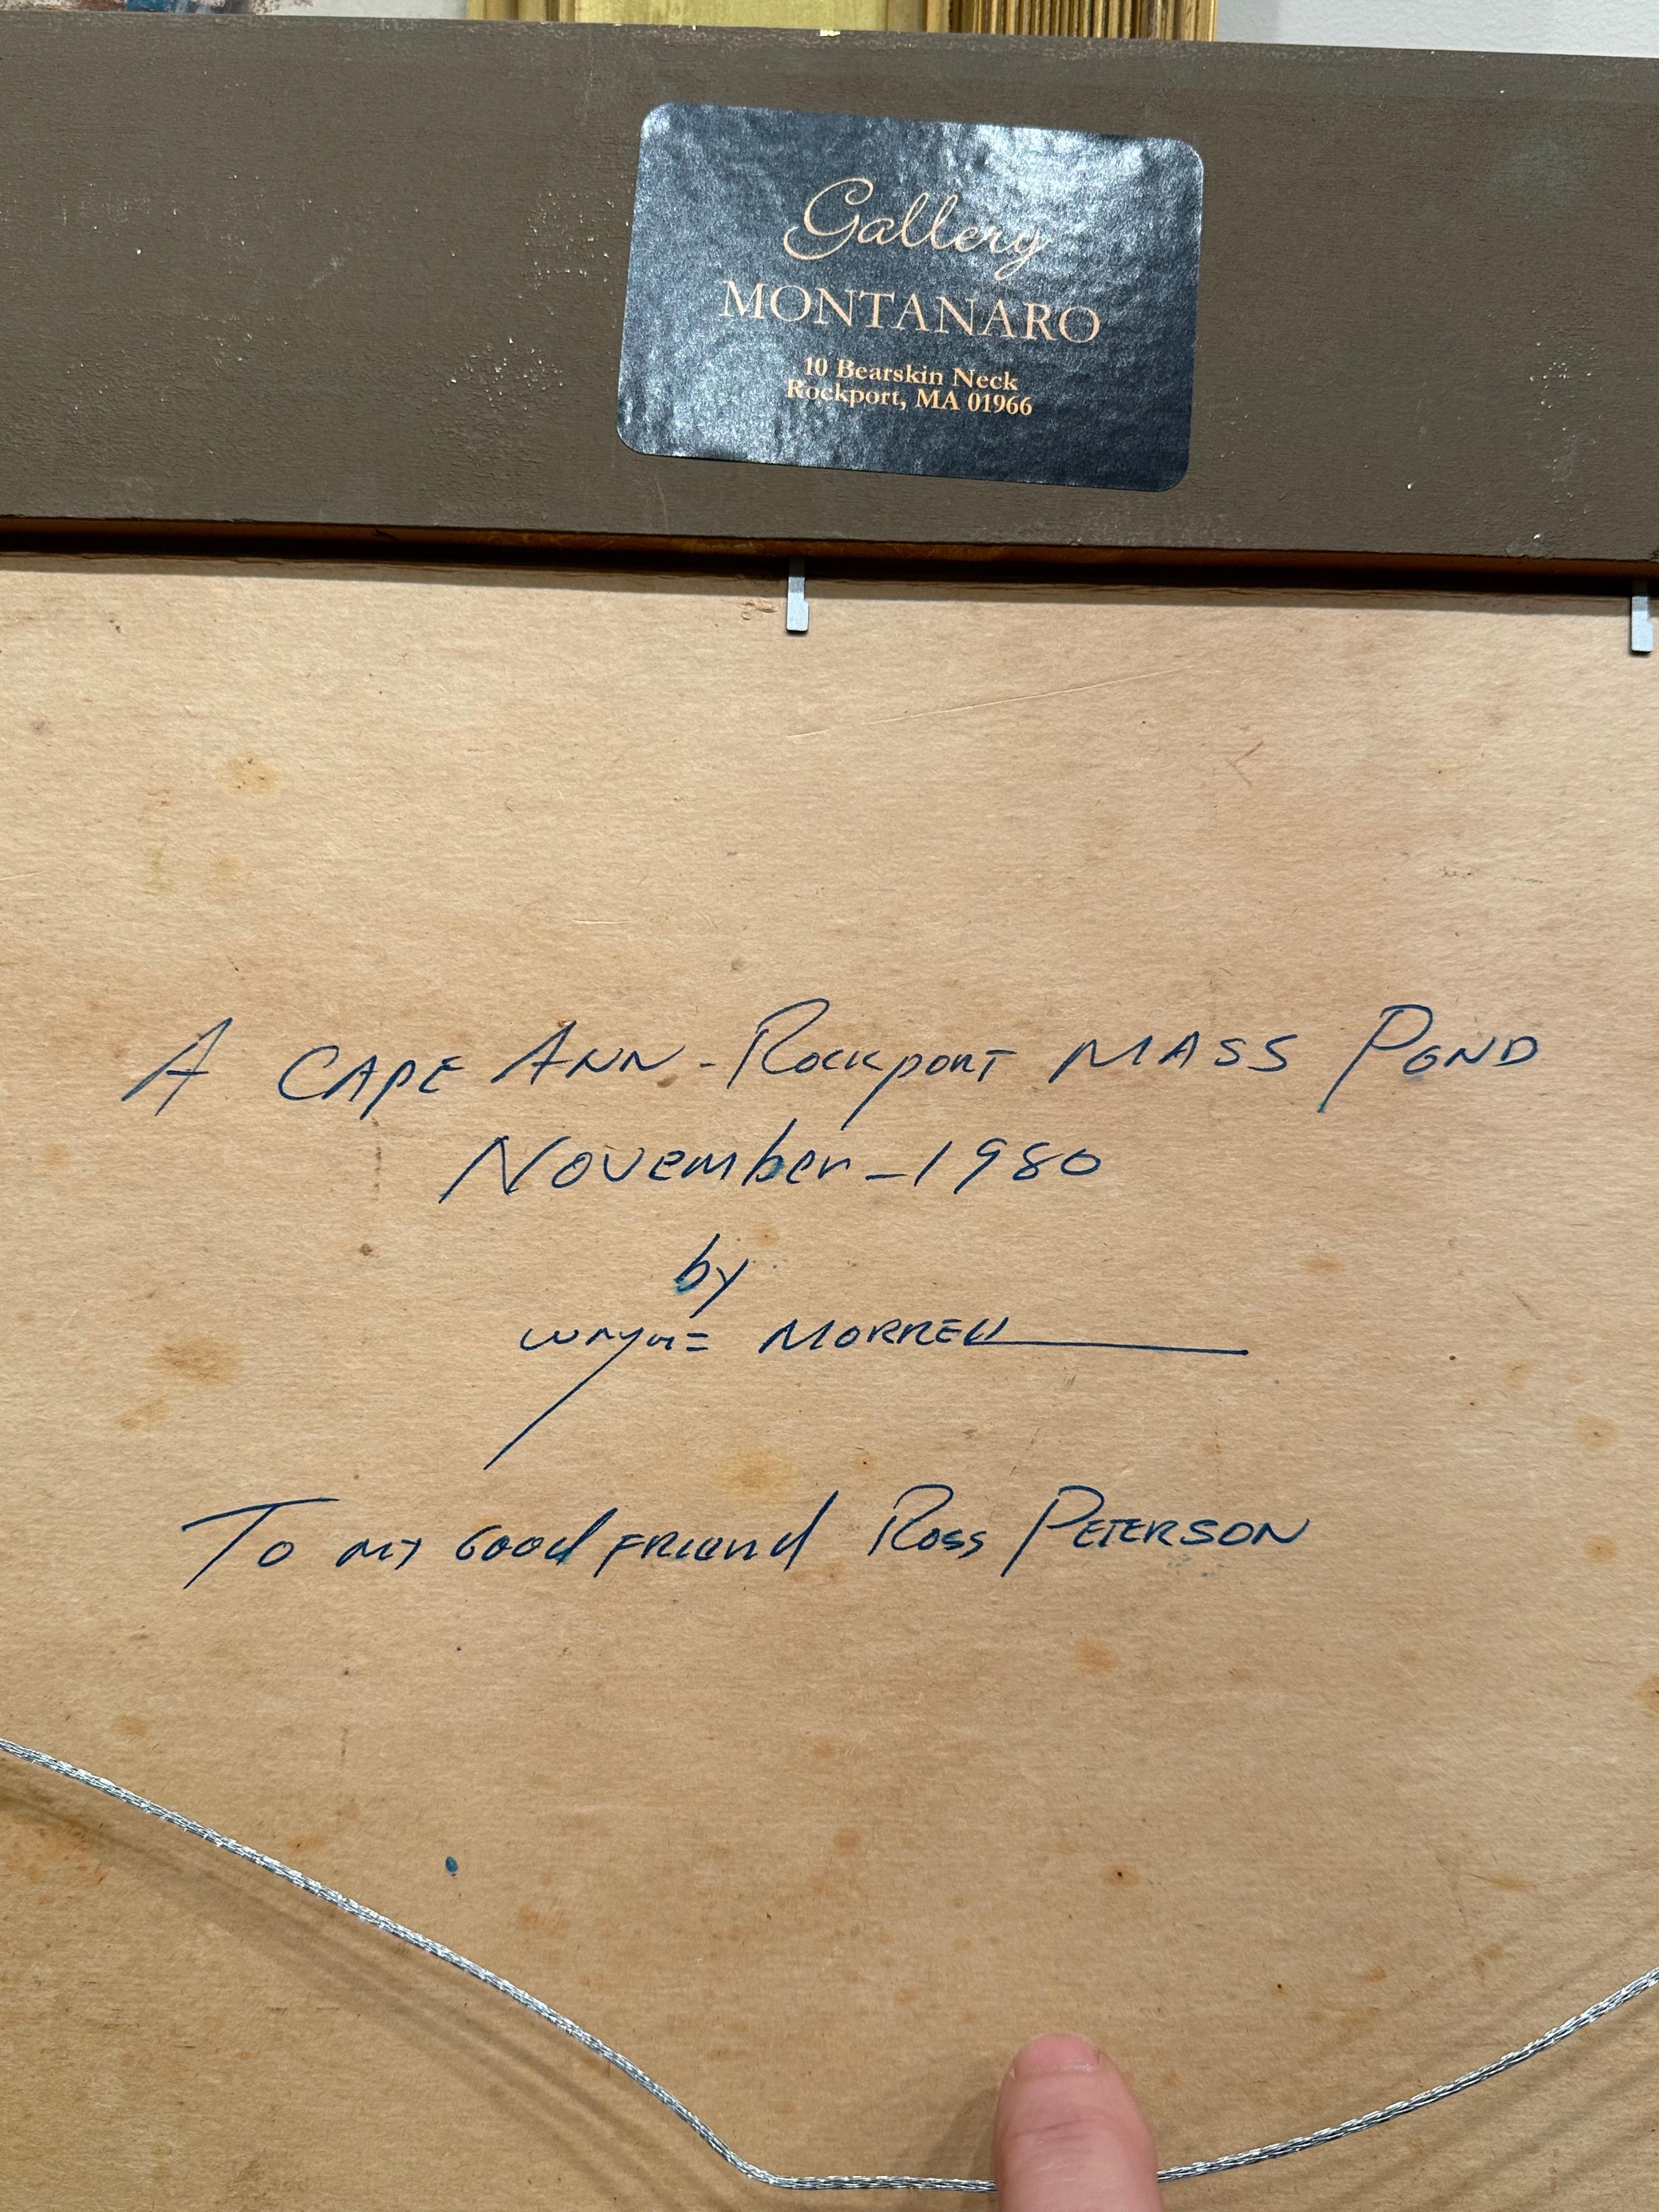 Gallery
MONTANARO
10 Bearskin Neck
Rockport, MA 01966
A CAPE ANN - Rockport MASS POND
November - 1980
by
WAYNE MORRELL
To MY GOOD FRIEND ROSS PETERSON